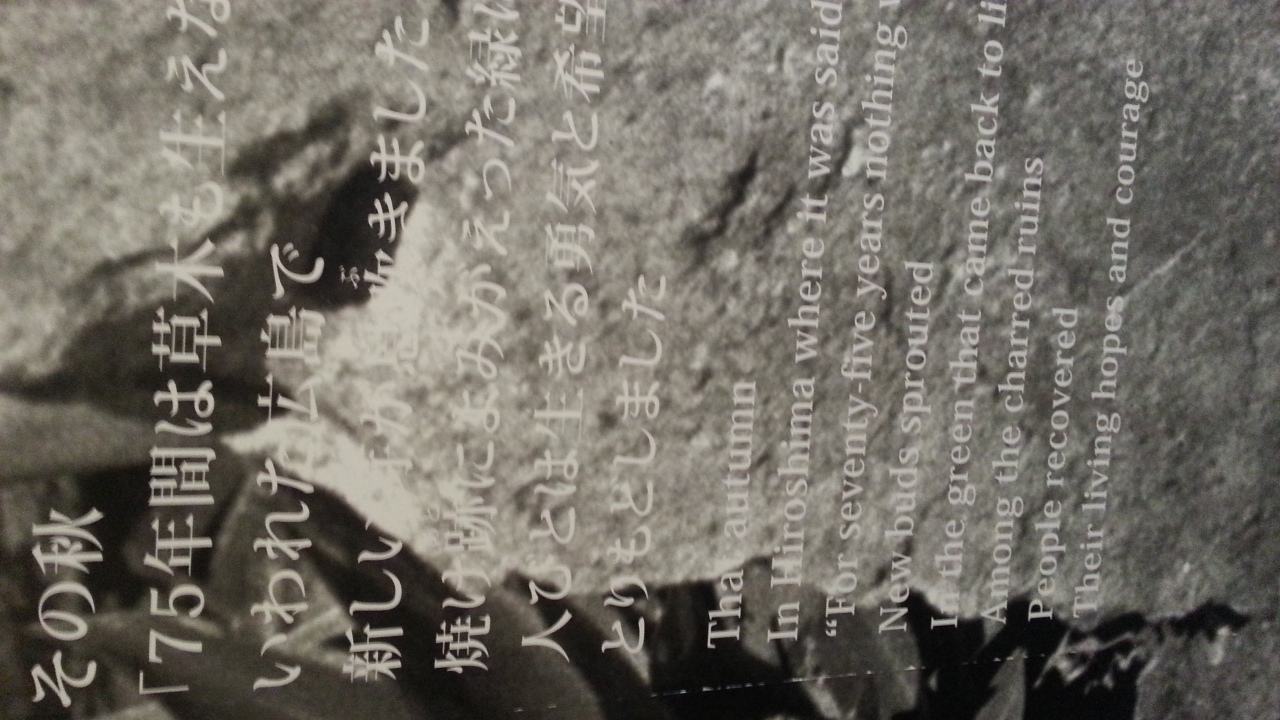 その秋
「75年間は草木も生えな
いわれた広島で
新しい芽が芽吹きました
焼け跡によみがえった緑に
人びとは生きる勇気と希望
とりもどしました
That autumn
In Hiroshima where it was said
“For seventy-five years nothing
New buds sprouted
In the green that came back to li
Among the charred ruins
People recovered
Their living hopes and courage